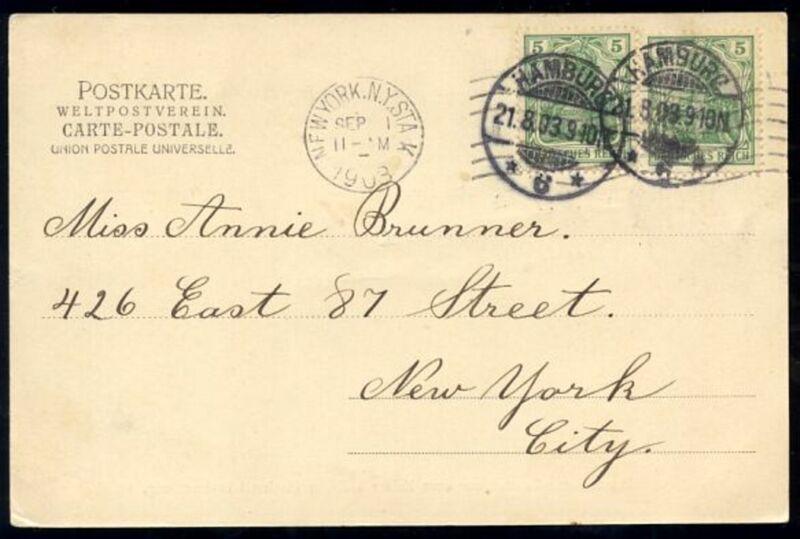 POSTKARTE.
WELTPOSTVEREIN.
CARTE-POSTALE.
UNION POSTALE UNIVERSELLE.
NEW YORK. N.Y. STA. K
SEP 1
11-AM
1903
5 5
5 5
HAMBURG
21.8.03.9-10N.
* 6 *
HAMBURG
21.8.03.9-10N.
REICH
Miss Annie Brunner.
426 East 87 Street.
New York
City.